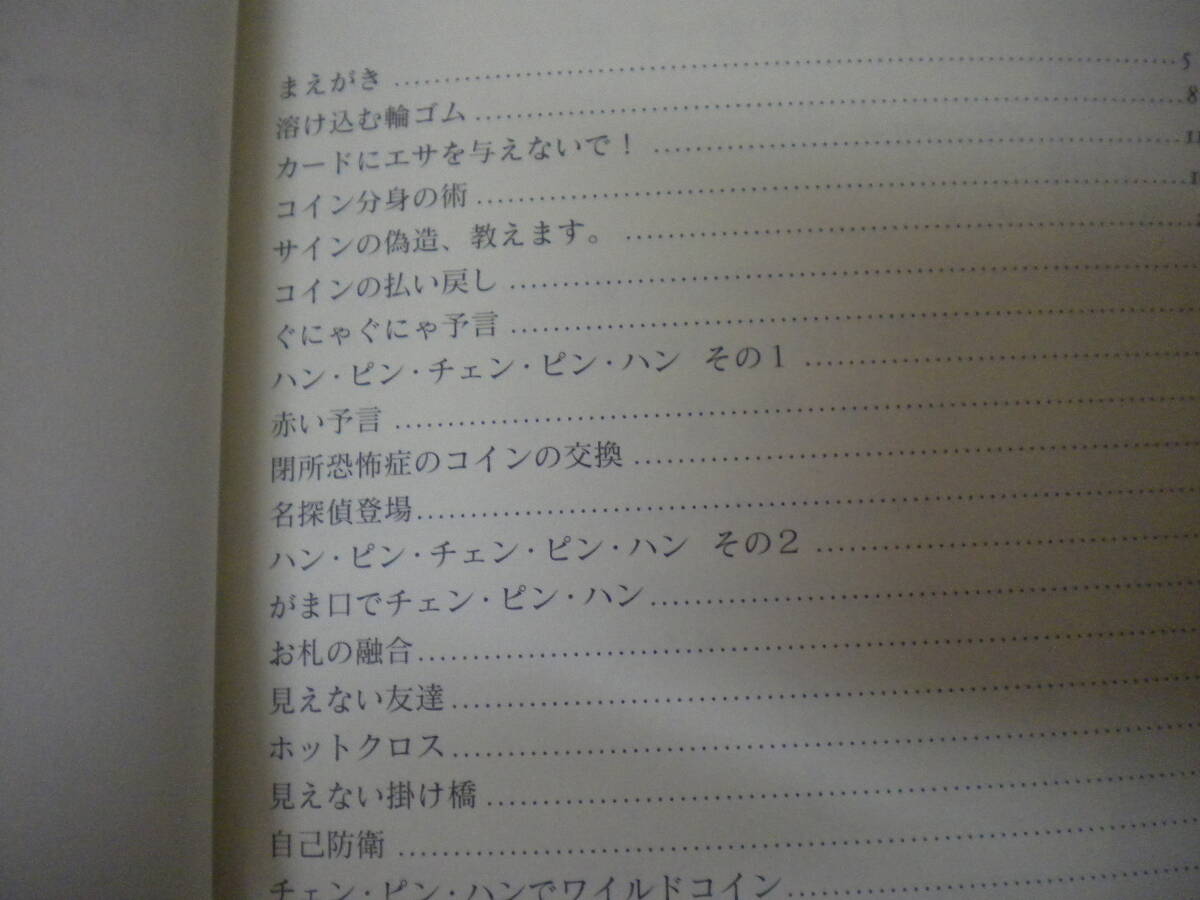 まえがき ……………………………………………………………… 5
溶け込む輪ゴム ……………………………………………………… 8
カードにエサを与えないで！ ………………………………………
コイン分身の術 ………………………………………………………
サインの偽造、教えます。 …………………………………………
コインの払い戻し ……………………………………………………
ぐにゃぐにゃ予言 ……………………………………………………
ハン・ピン・チェン・ピン・ハン その１ …………………………
赤い予言 ………………………………………………………………
閉所恐怖症のコインの交換 …………………………………………
名探偵登場 ……………………………………………………………
ハン・ピン・チェン・ピン・ハン その２ …………………………
がま口でチェン・ピン・ハン ………………………………………
お札の融合 ……………………………………………………………
見えない友達 …………………………………………………………
ホットクロス …………………………………………………………
見えない掛け橋 ………………………………………………………
自己防衛 ………………………………………………………………
チェン・ピン・ハンでワイルドコイン ……………………………